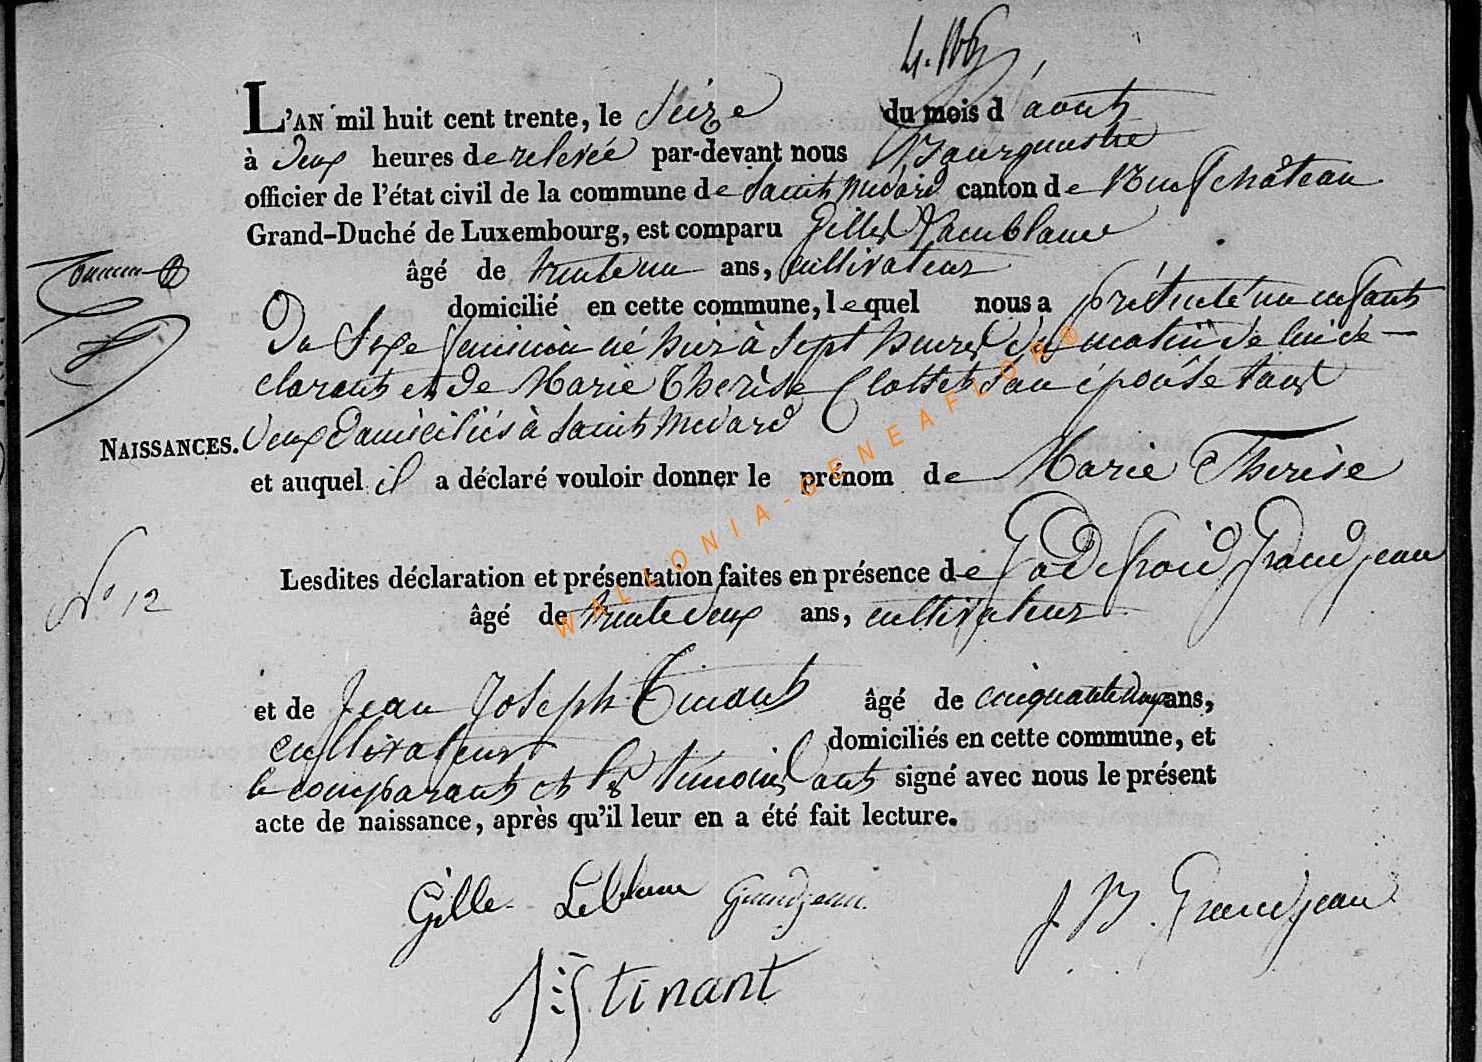 L'AN mil huit cent trente, le Seize du mois d'aout
à deux heures de relevée par-devant nous Bourguestre
officier de l'état civil de la commune de Saint Médard canton de Neufchâteau
Grand-Duché de Luxembourg, est comparu Gilles
âgé de trente un ans, cultivateur
domicilié en cette commune, lequel nous a présenté un enfant
Du Sexe féminin né hier à Sept heures du matin de lui dé-
clarant et de Marie Therèse Clottet Sau épouse taus
deux Domiciliés à Saint Médard
NAISSANCES.
et auquel il a déclaré vouloir donner le prénom de Marie Therèse
N° 12
Lesdites déclaration et présentation faites en présence de Godefroid Grandjean
âgé de trente deux ans, cultivateur
et de Jean Joseph Tinant âgé de cinquante deux ans,
cultivateur domiciliés en cette commune, et
le comparant et les témoins ont signé avec nous le présent
acte de naissance, après qu'il leur en a été fait lecture.
Gille Leblanc Grandjean J. B. Grandjean
J: J tinant
WALLONIA-GENEAFLOR®